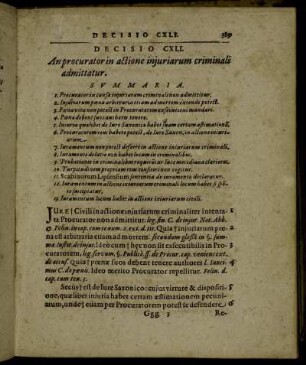 DECISIO CXLI. 389
DECISIO CXLI.
An procurator in actione injuriarum criminali
admittatur.
SVMMARIA.
1. Procurator in causa injuriarum criminali non admittitur.
2. Injuriarum pœna arbitraria etiam ad mortem extendi potest.
3. Pœna vita non potest in Procuratorem ex executioni mandari.
4. Pœna debent suos autores tenere.
5. Injuria quælibet de Iure Saxonico habet suam certam æstimationē.
6. Procuratorem vero habere potest, de Iure Saxon. in actione injuriarum
7. Iuramentum non potest deferri in actione injuriarum criminali.
8. Iuramenti delatio non habet locum in criminalibus.
9. Probationes in criminalibus requiruntur luce meridiana clariores.
10. Turpitudinem propriam nemo cogitur
11. Scabinorum Lipsensium sententia de juramento declaratur.
12. Iuramentum in actione injuriarum criminali locum habet si
suscipiatur.
13. Iuramentum locum habet in actione injuriarum civili.
IURE Civili in actione injuriarum criminaliter intentata
Procurator non admittitur. leg. fin. C. de injur. Not. Abb.
& Felin. in cap. cum te num. 2. ext. d. tit. Quia injuriarum pœna
est arbitraria etiam ad mortem.
Iacob. um & hæc non sit executibilis in Procuratorem,
leg. servum. §. Publicè. ff. de Procur. cap. veniens
de accus. Quia & pœnæ suos debent tenere authores l. Sancimus
C. de pœnis. Ideo merito Procurator repellitur. Felin. d.
cap. cum tem. 1.
Secus est de Iure Saxonico: cujus virtute & dispositione,
quælibet injuria habet certam æstimationem pecuniariam,
unde & etiam per Procuratorem potest se defendere
Ggg 3 Re-